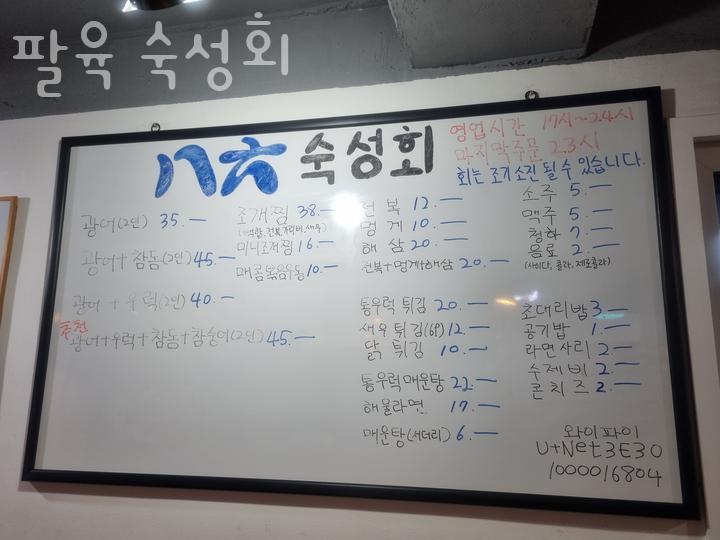 팔육 숙성회
八六 숙성회
영업시간 17시~24시
마지막주문 23시
회는 조기소진 될 수 있습니다.
광어(2인) 35.―
광어+참돔(2인) 45.―
광어+우럭(2인) 40.―
추천
광어+우럭+참돔+참숭어(2인) 45.―
조개찜 38.―
전복, 가리비, 새우)
미니조개찜 16.―
매콤볶음우동 10.―
전복 12.―
멍게 10.―
해삼 20.―
전복+멍게+해삼 20.―
통우럭 튀김 20.―
새우 튀김(6P) 12.―
닭 튀김 10.―
통우럭매운탕 22.―
해물라면 17.―
매운탕(서더리) 6.―
소주 5.―
맥주 5.―
청하 7.―
음료 2.―
(사이다, 콜라, 제로콜라)
초대리밥 3.―
공기밥 1.―
라면사리 2.―
수제비 2.―
콘치즈 2.―
와이파이
U+Net3E30
1000016804